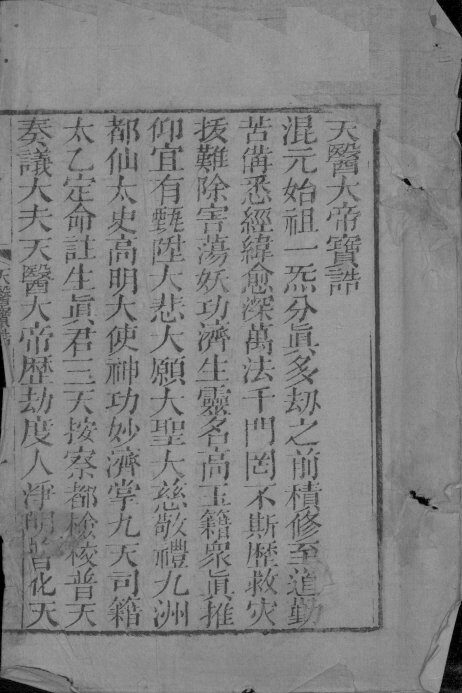 天醫大帝寶誥
混元始祖一炁分眞多刼之前積修至道勤
苦備悉經緯愈深萬法千門罔不斯歷救灾
拔難除害蕩妖功濟生靈名高玉籍衆眞推
仰宜有甄陞大悲大願大聖大慈敬禮九洲
都仙太史高明大使神功妙濟掌九天司籍
太乙定命註生眞君三天按察都檢校普天
奏議大夫天醫大帝歷劫度人淨明普化天
天醫寶誥